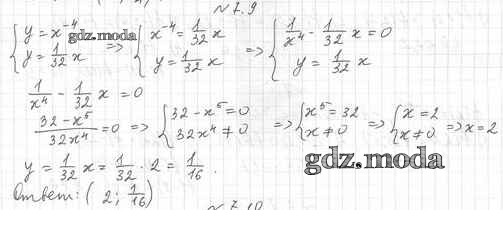 N 7.9
{ y = x⁻⁴ y = 1/32 x => { x⁻⁴ = 1/32 x y = 1/32 x => { 1/x⁴ - 1/32 x = 0 y = 1/32 x
gdz.moda
1/x⁴ - 1/32 x = 0
32 - x⁵ / 32x⁴ = 0 => { 32 - x⁵ = 0 32x⁴ ≠ 0 => { x⁵ = 32 x ≠ 0 => { x = 2 x ≠ 0 => x = 2
y = 1/32 x = 1/32 · 2 = 1/16 .
gdz.moda
Ответ: ( 2; 1/16)